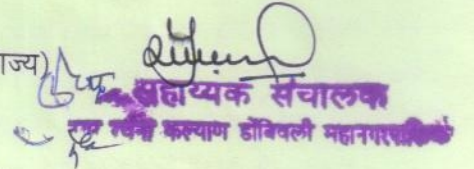 ाज्य)
सहाय्यक संचालक
रचना कल्याण डोंबिवली महानगरपालिका